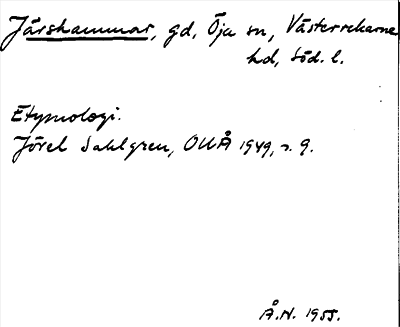 Järshammar, gd, Öja sn, Västerrekarne
hd, Söd. l.
Etymologi.
Jöran Sahlgren, ONÅ 1949, s. 9.
Å.N. 1955.